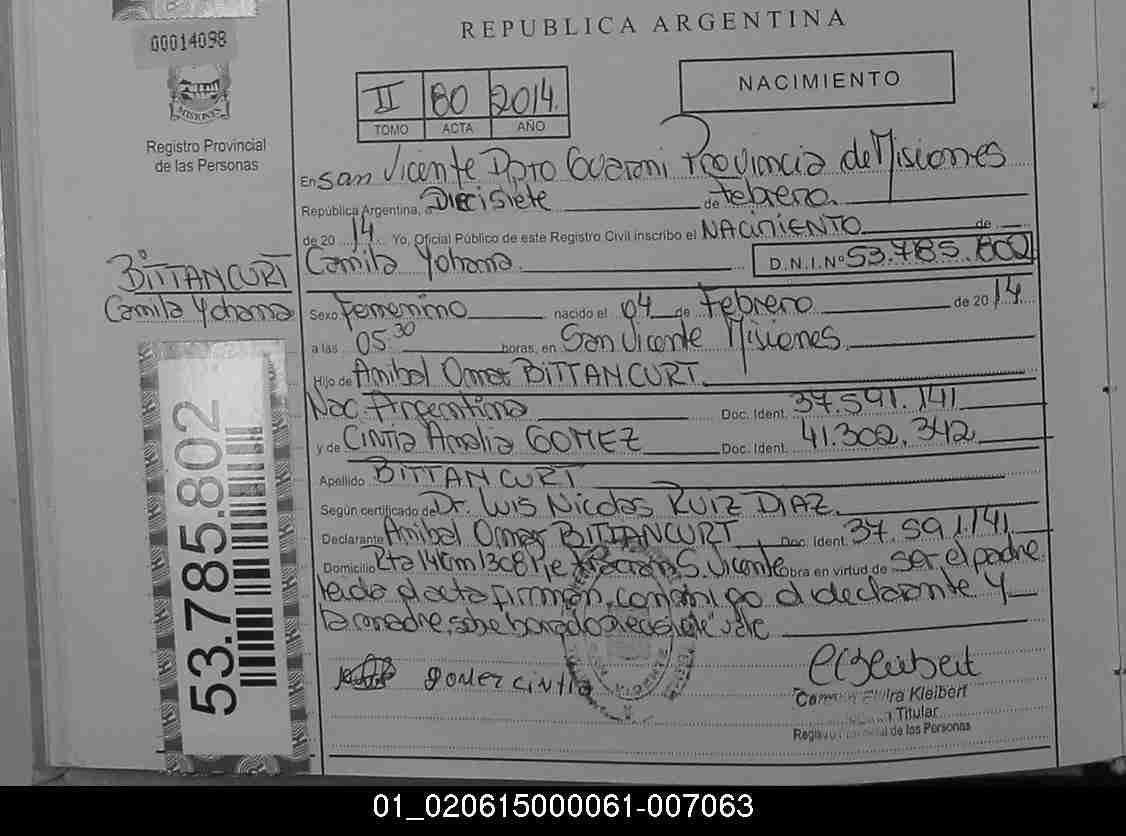 REPUBLICA ARGENTINA
00014098
MISIONES
Registro Provincial
de las Personas
II 80 2014.
TOMO ACTA AÑO
NACIMIENTO
En San Vicente Dpto Guarani Provincia de Misiones
República Argentina, a Diecisiete de Febrero.
de 20 14 Yo, Oficial Público de este Registro Civil inscribo el NACIMIENTO de
Camila Yohana D.N.I.Nº 53.785.802
BITTANCURT
Camila Yohana
Sexo Femenino nacido el 04 de Febrero de 20 14
a las 05 30 horas, en San Vicente Misiones
Hijo de Anibal Omar BITTANCURT
Nac. Argentina Doc. Ident. 37.591.141
y de CINTIA Amalia GOMEZ Doc. Ident. 41.302.342
Apellido BITTANCURT
Según certificado de Dr. Luis Nicolas RUIZ DIAZ.
Declarante Anibal Omar BITTANCURT Doc. Ident. 37.591.141
Domicilio Rta 14 Km 1308 S. Vicente obra en virtud de ser el padre
leida el acta firman conmigo el declarante y
la madre, sobre borrado vale
gomez cintia
53.785.802
Elvira Kleibert
Titular
Registro Provincial de las Personas
01_020615000061-007063